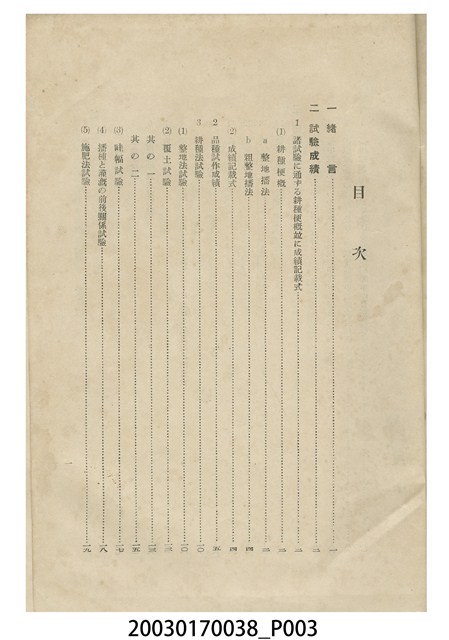 目次
一 緒言 一
二 試驗成績 二
1 諸試驗に通ずる耕種梗概竝に成績記載式 二
(1) 耕種梗概 二
a 整地播法 二
b 粗整地播法 四
(2) 成績記載式 四
2 品種試作成績 五
3 耕種法試驗 一〇
(1) 整地法試驗 一〇
(2) 覆土試驗
其の一
其の二 一五
(3) 畦幅試驗 一七
(4) 播種と灌漑の前後關係試驗 一八
(5) 施肥法試驗 一九
一
20030170038_P003